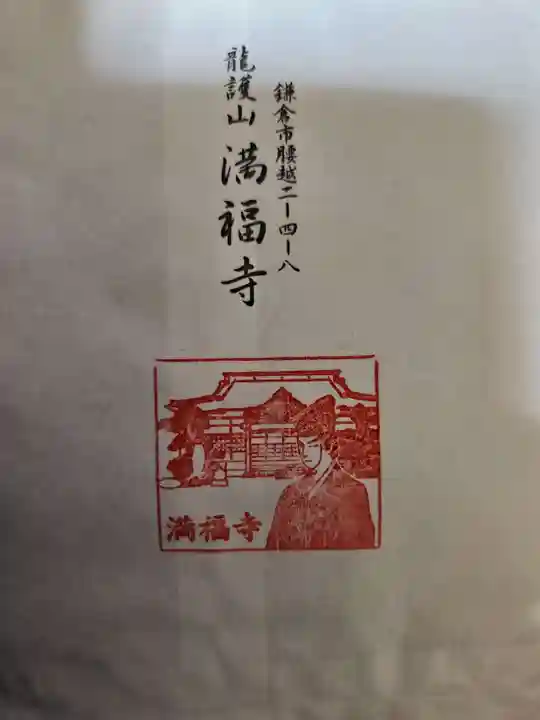 鎌倉市腰越二ー四ー八
龍護山 満福寺
満福寺